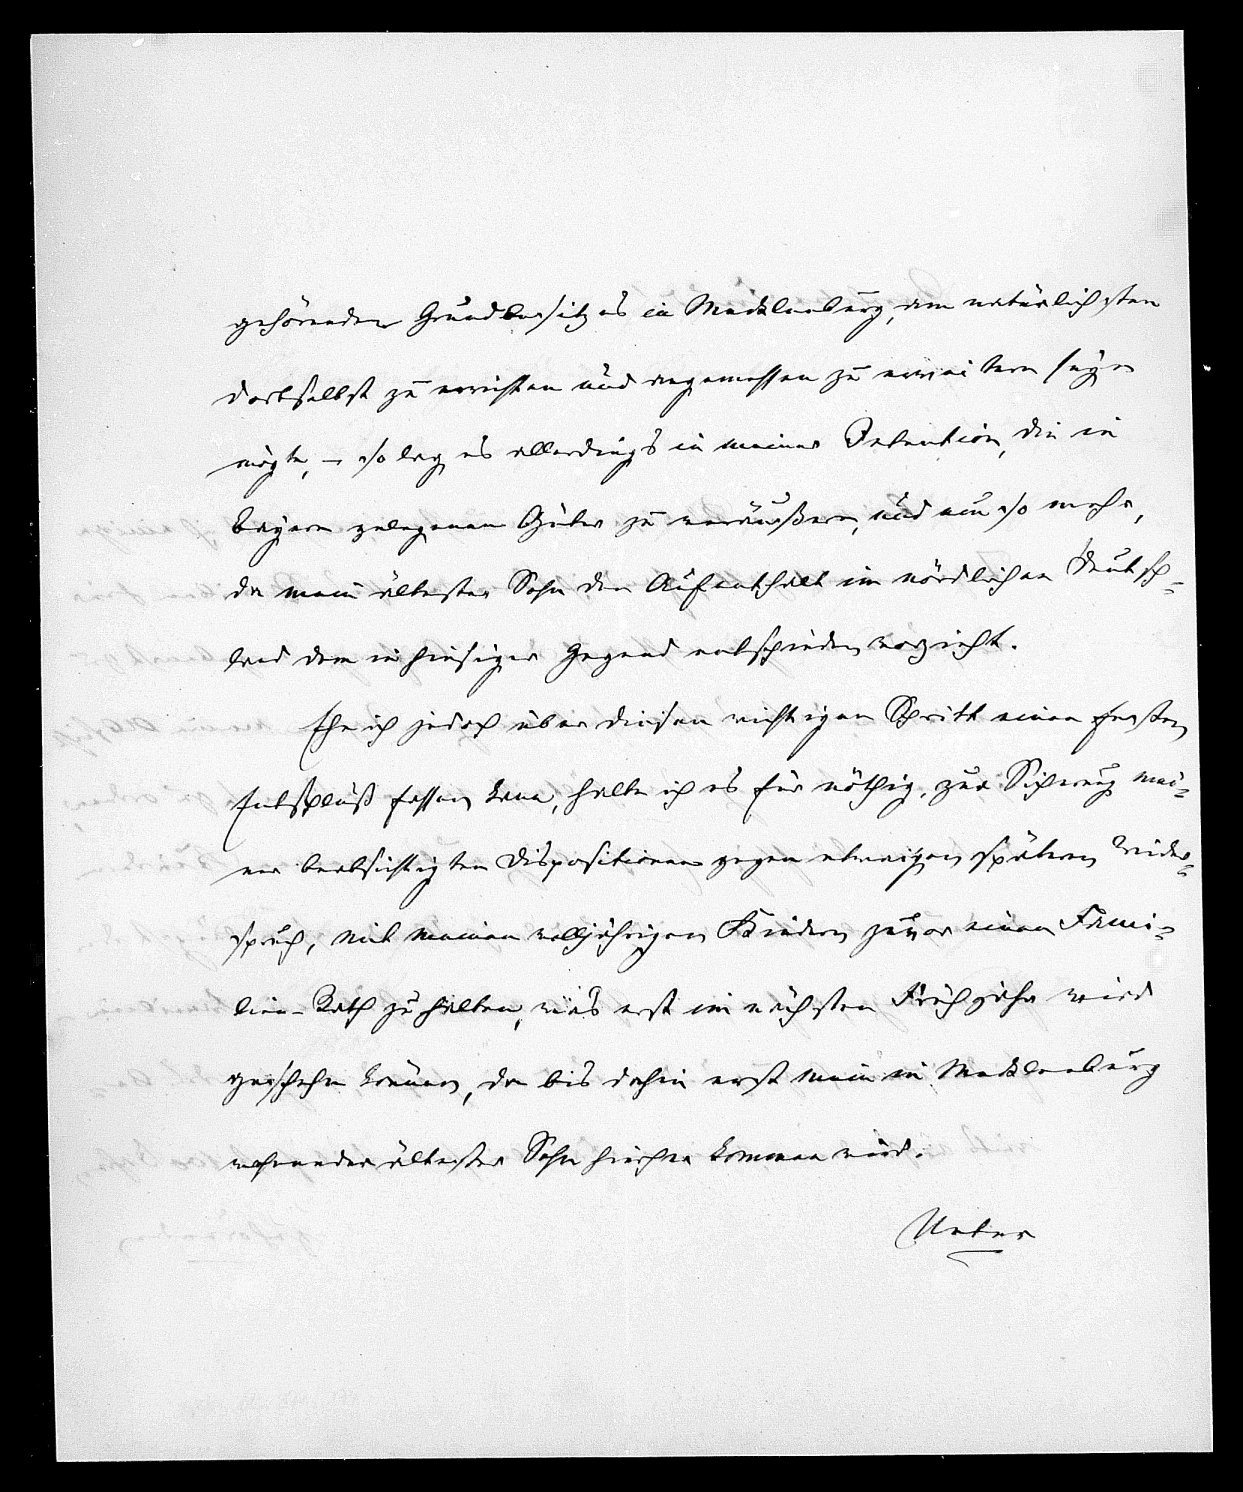 gehörenden Grundbesitzes in Mecklenburg, am natürlichsten
dortselbst zu errichten und angemessen zu erweitern seyn
mögte, – so lag es allerdings in meiner Intention, die in
Bayern gelegenen Güter zu veräußern, und um so mehr,
da mein ältester Sohn den Aufenthalt im nördlichen Deutsch-
land dem in hiesiger Gegend entschieden vorzieht.
Ehe ich jedoch über diesen wichtigen Schritt einen festen
Entschluß fassen kann, halte ich es für nöthig, zur Sicherung mei-
ner beabsichtigten Dispositionen gegen etwaigen späteren Wider-
spruch, mit meinen volljährigen Kindern zuvor einen Fami-
lien-Rath zu halten, was erst im nächsten Frühjahr wird
geschehen können, da bis dahin erst mein in Mecklenburg
wohnender ältester Sohn hierher kommen wird.
Ueber